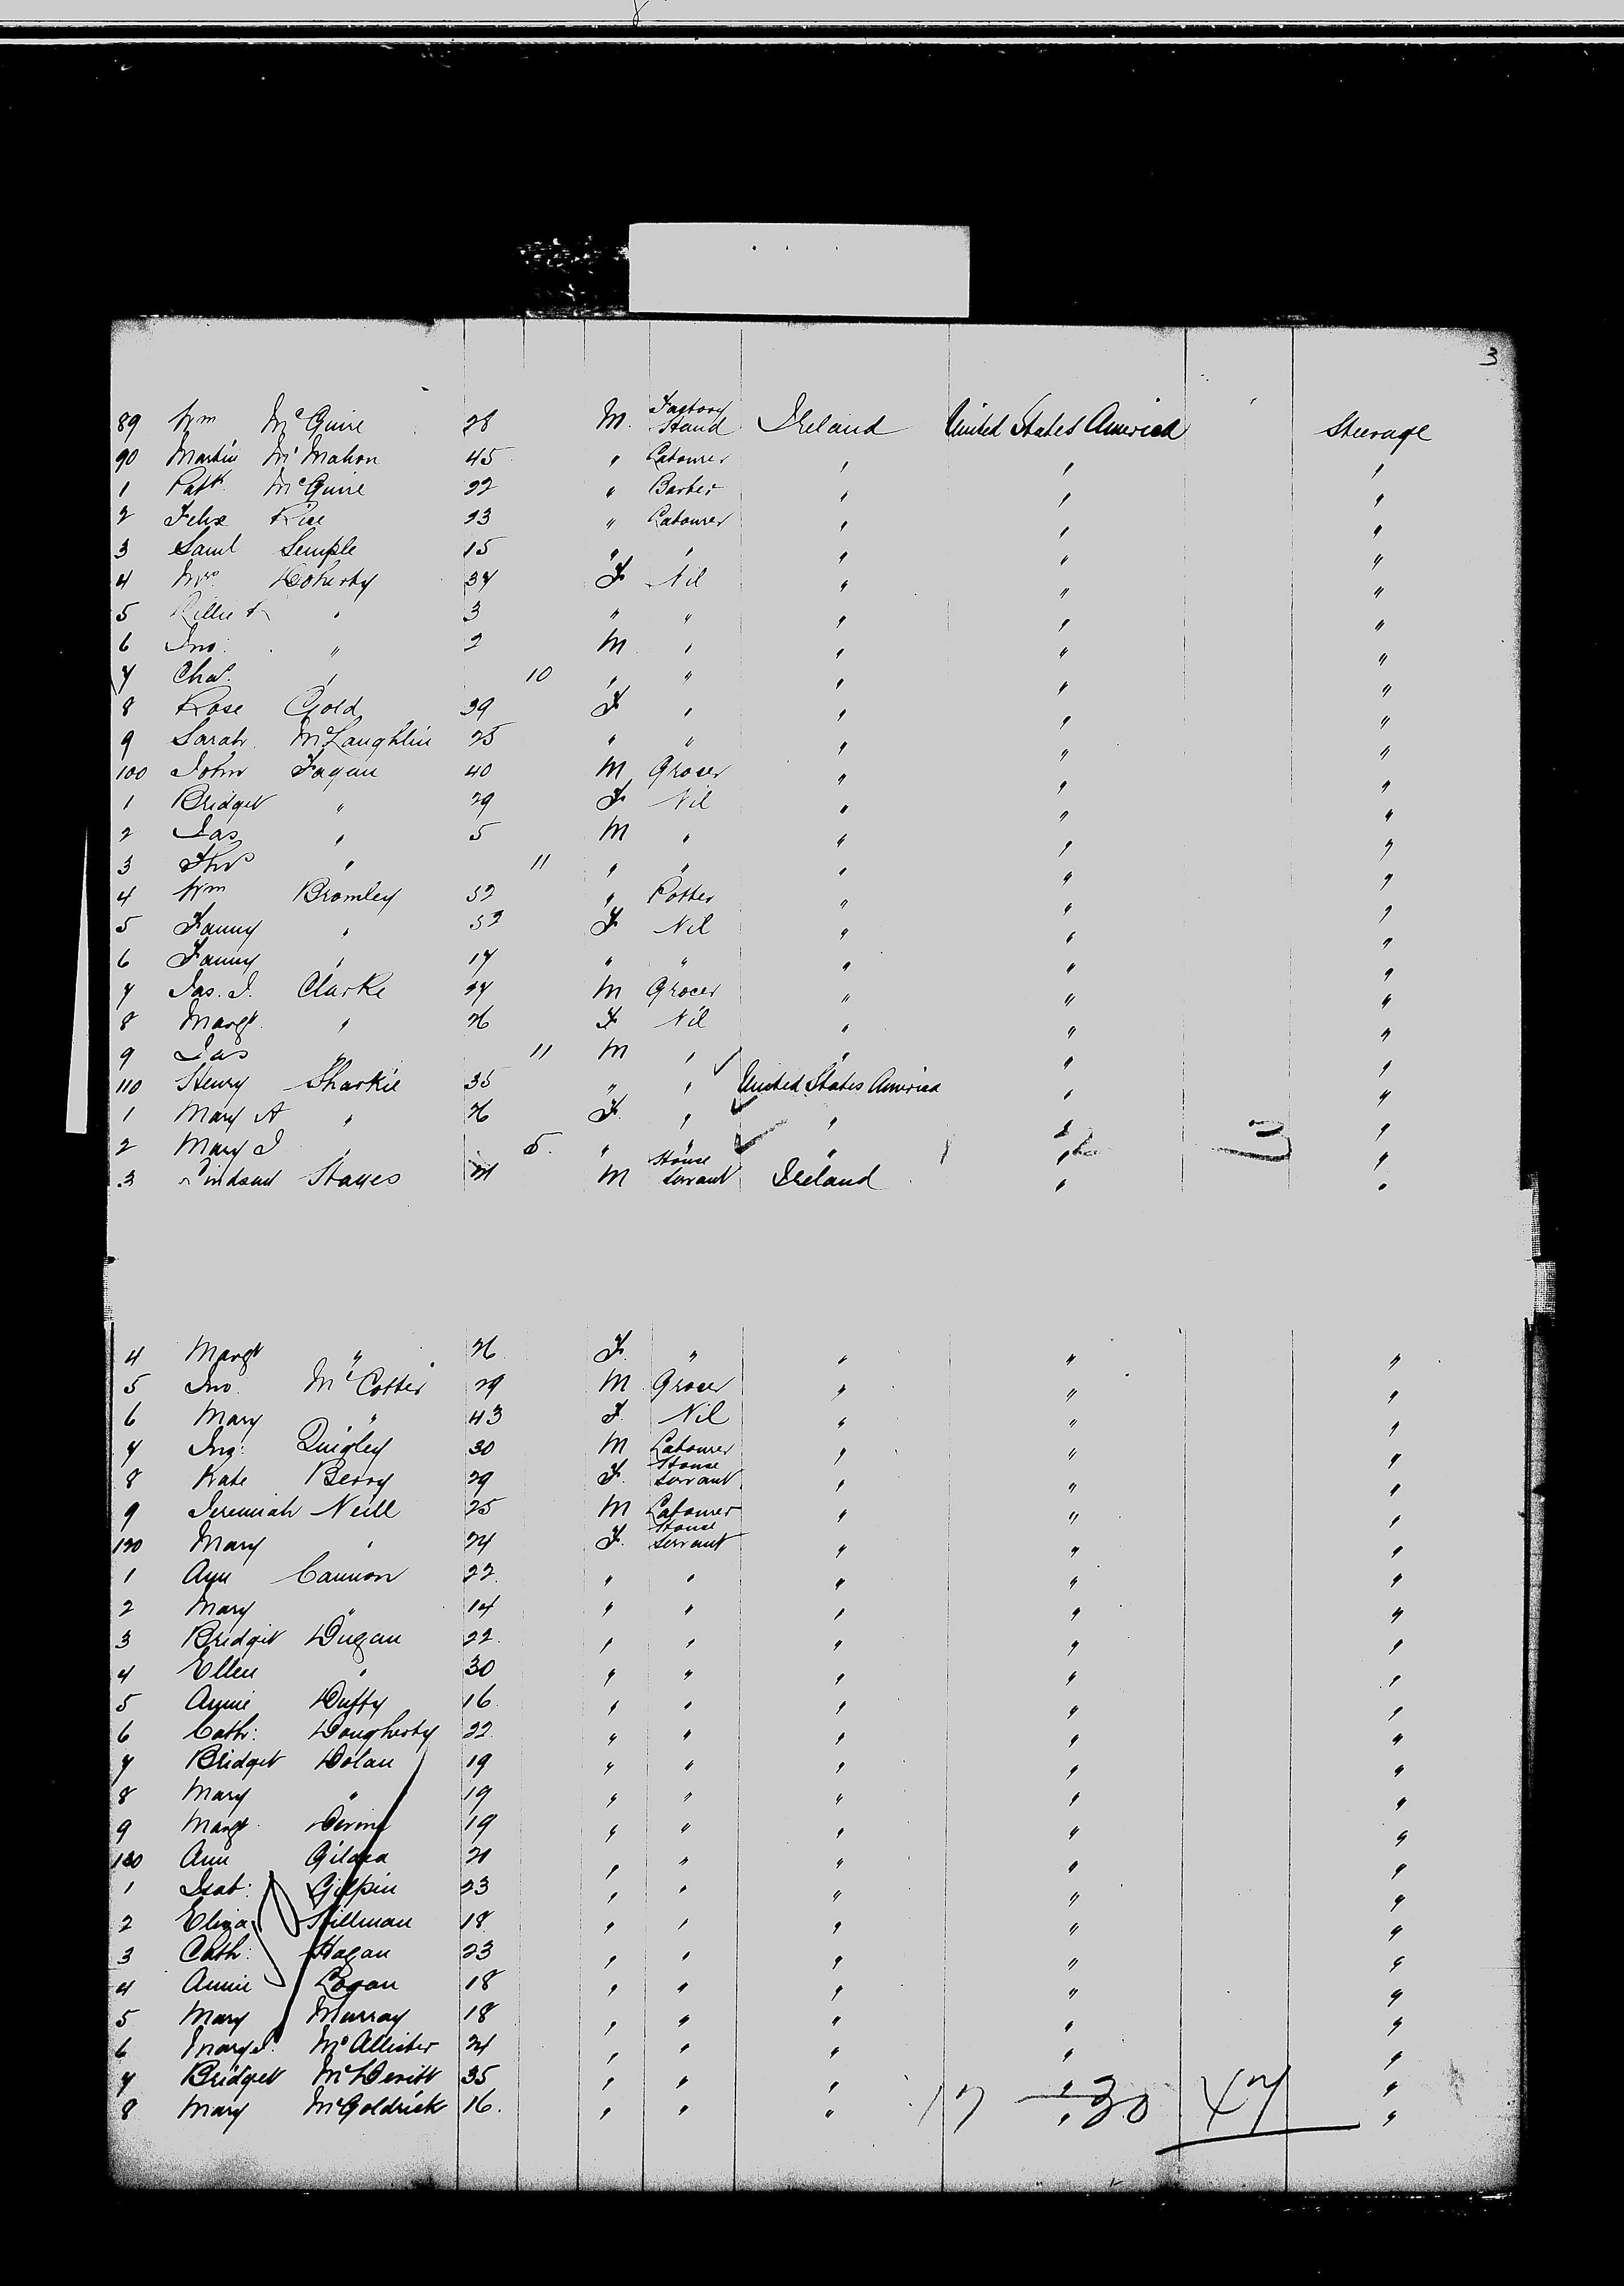 3
89 Wm McGuire 28 M. Factory Hand Ireland United States America Steerage
90 Martin McMahon 45 " Labourer " " "
1 Patk McGuire 22 " Barber " " "
2 Felix Rice 23 " Labourer " " "
3 Saml Semple 15 " " " " "
4 Mrs Doherty 34 F Nil " " "
5 " 3 " " " " "
6 Jno: " 2 M " " " "
7 Chas. " 10 " " " " "
8 Rose Gold 39 F " " " "
9 Sarah McLaughlin 25 " " " " "
100 John Fagan 40 M Grocer " " "
1 Bridget " 29 F Nil " " "
2 Jas " 5 M " " " "
3 Thos " 11 " " " " "
4 Wm Bromley 52 " Potter " " "
5 Fanny " 52 F Nil " " "
6 Fanny " 17 " " " " "
7 Jas. J. Clarke 27 M Grocer " " "
8 Margt " 26 F Nil " " "
9 Jas " 11 M " " " "
110 Henry Sharkie 35 " " United States America " "
1 Mary A " 26 F. " " " "
2 Mary J " 5. " " " " "
3 Lindsay Hayes 21 M House Servant Ireland " "
4 Margt " 26 F. " " " "
5 Jno. McCotter 29 M Grocer " " "
6 Mary " 43 F. Nil " " "
7 Jno: Quigley 30 M Labourer " " "
8 Kate Berry 29 F. House Servant " " "
9 Jeremiah Neill 25 M Labourer " " "
120 Mary " 24 F. House Servant " " "
1 Ann Cannon 22 " " " " "
2 Mary " 14 " " " " "
3 Bridget Dugan 22 " " " " "
4 Ellen " 30 " " " " "
5 Annie Duffy 16 " " " " "
6 Cath: Dougherty 22 " " " " "
7 Bridget Dolan 19 " " " " "
8 Mary " 19 " " " " "
9 Margt Devine 19 " " " " "
130 Ann Gildea 21 " " " " "
1 Isab: Gilpin 23 " " " " "
2 Eliza Hillman 18 " " " " "
3 Cath: Hagan 23 " " " " "
4 Annie Logan 18 " " " " "
5 Mary Murray 18 " " " " "
6 Mary J. McAllister 24 " " " " "
7 Bridget McDevitt 35 " " " " "
8 Mary McGoldrick 16. " " " " "
17 30 47